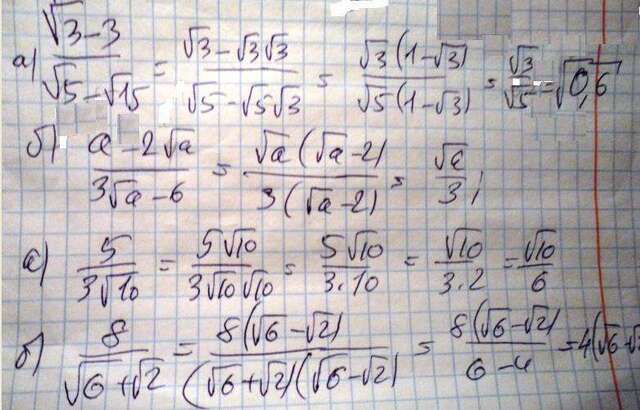 а) (√3 - 3)/(√5 - √15) = (√3 - √3√3)/(√5 - √5√3) = √3(1 - √3)/√5(1 - √3) = √3/√5 = √0,6
б) (a - 2√a)/(3√a - 6) = √a(√a - 2)/3(√a - 2) = √a/3;
а) 5/(3√10) = 5√10/(3√10√10) = 5√10/(3·10) = √10/(3·2) = √10/6
б) 8/(√6 + √2) = 8(√6 - √2)/(√6 + √2)(√6 - √2) = 8(√6 - √2)/(6 - 4) = 4(√6 - √2